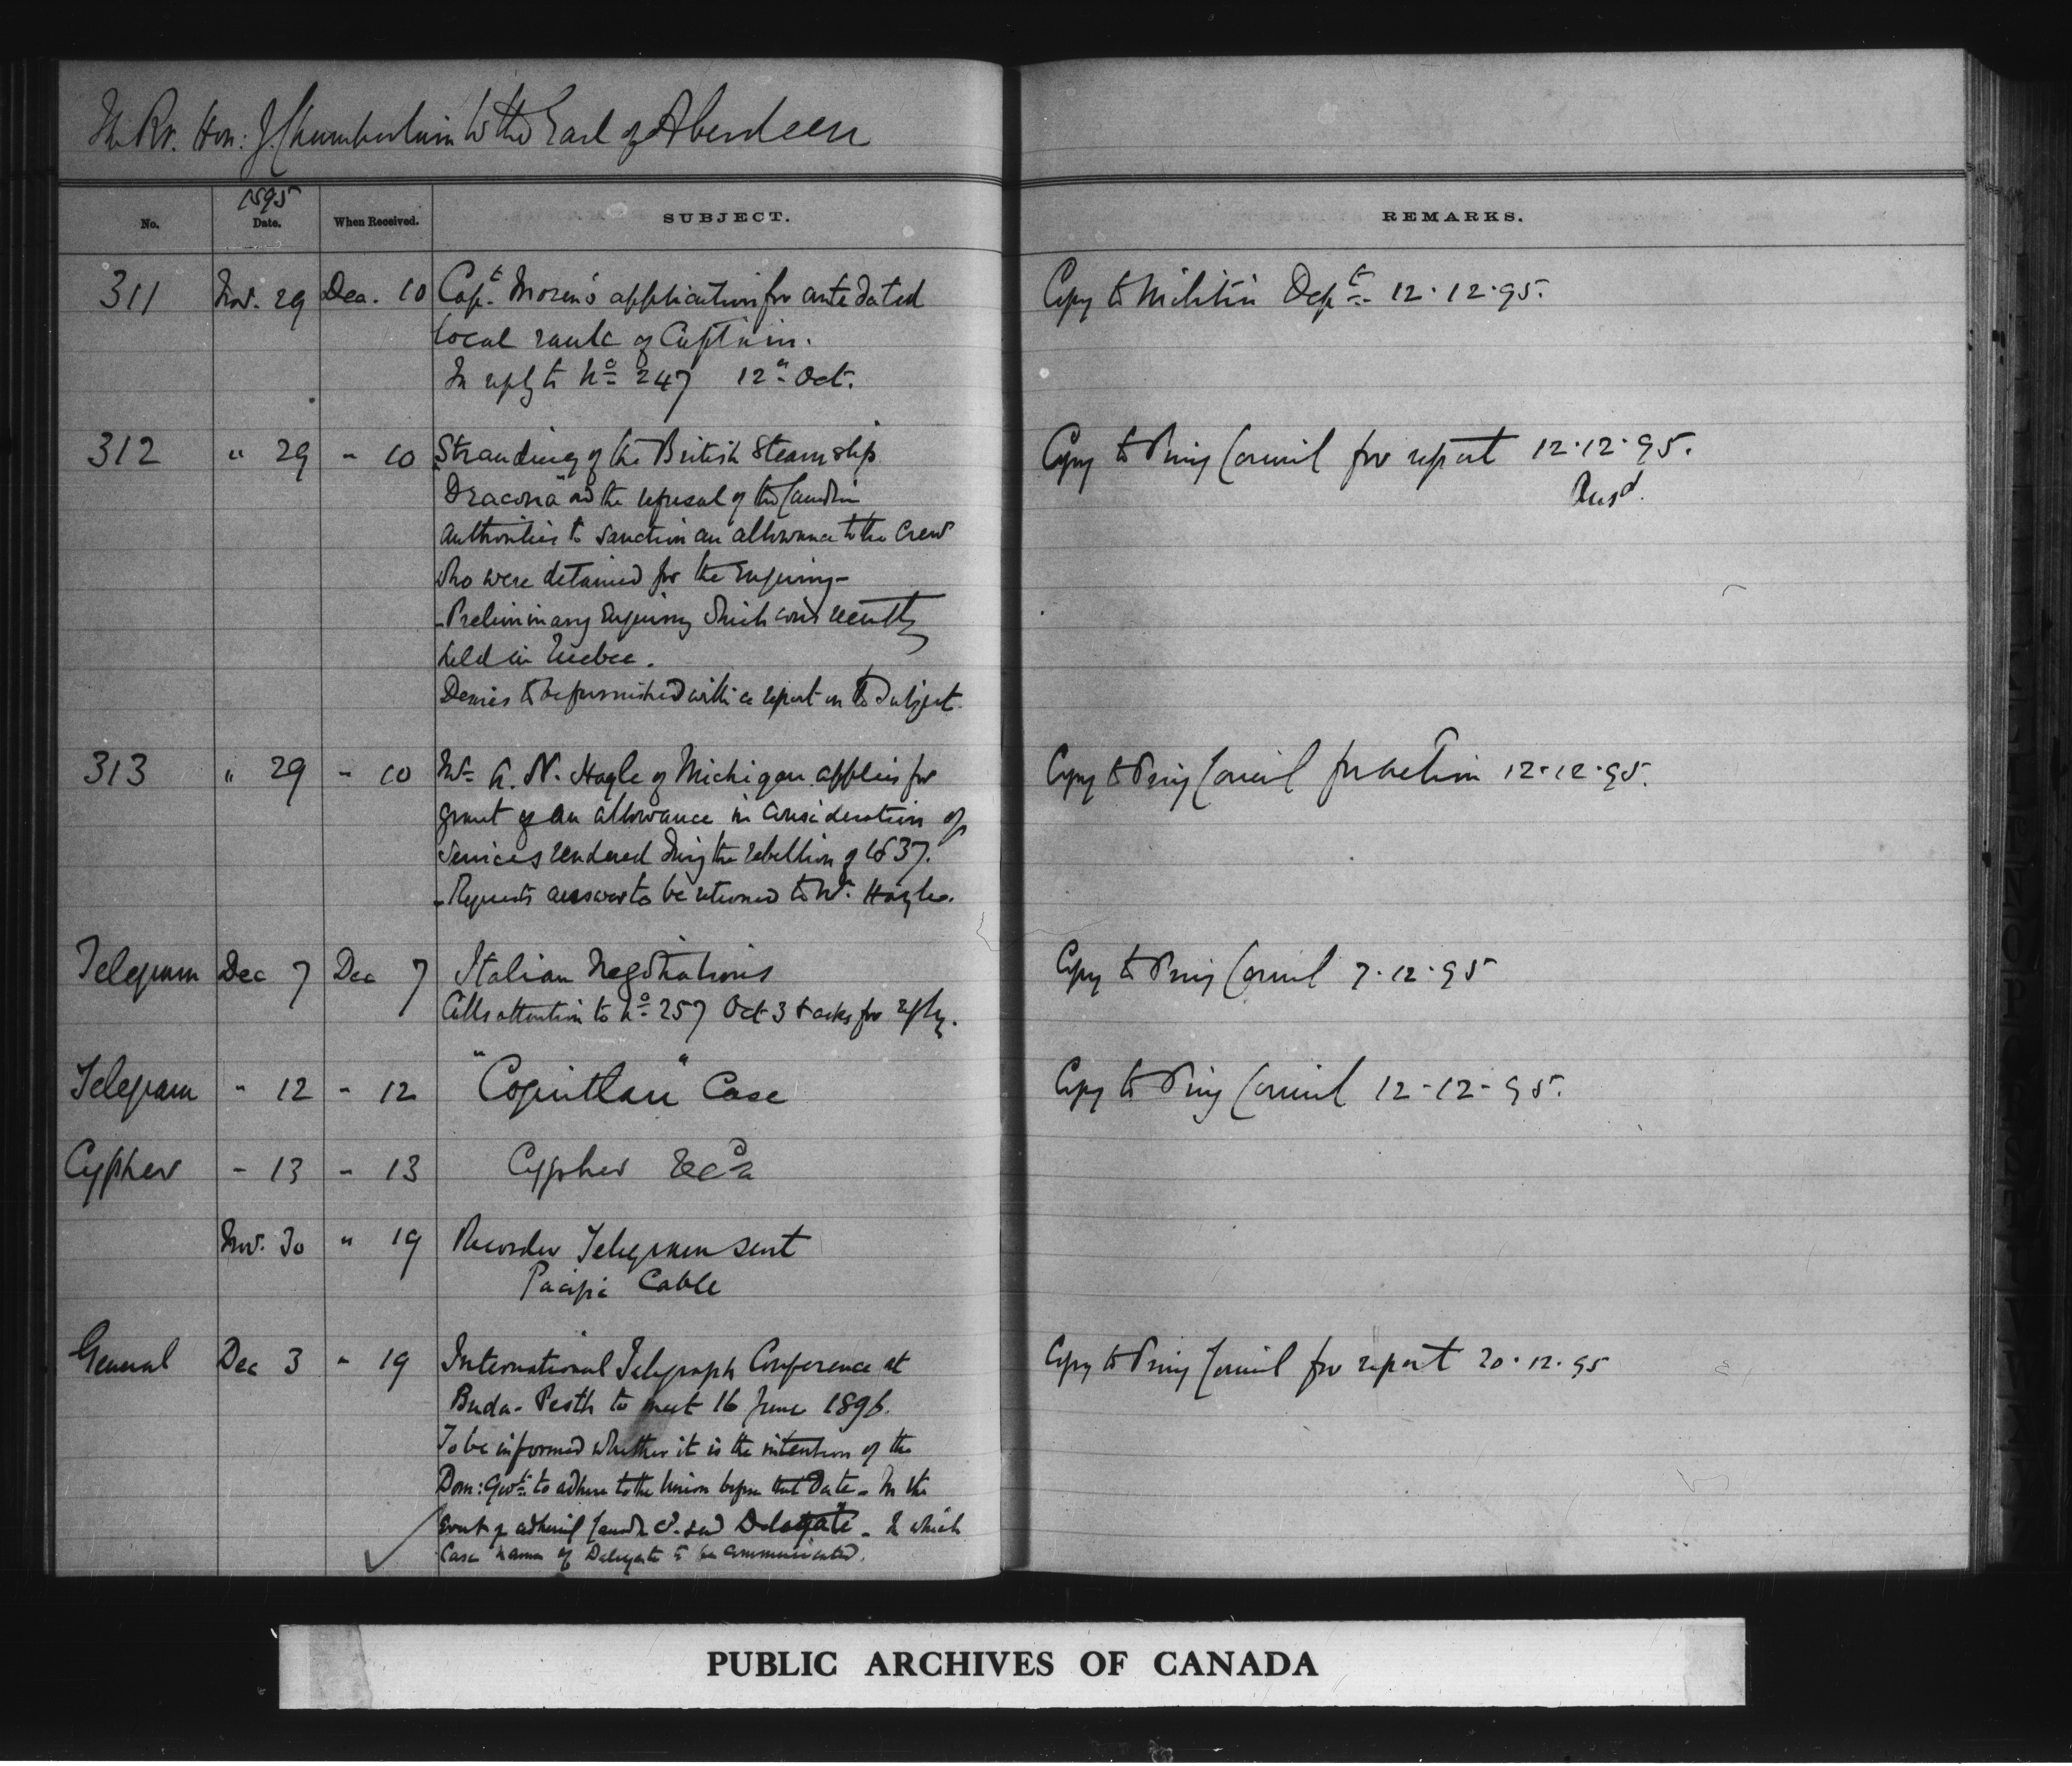 The Rt. Hon: J. Chamberlain to the Earl of Aberdeen
1895
No. Date. When Received. SUBJECT. REMARKS.
311 Nov. 29 Dec. 10 Capt. Moren's application for ante dated Copy to Militia Dept. 12.12.95.
local rank of Captain.
In reply to No 247 12th Oct.
312 " 29 - 10 Stranding of the British Steamship Copy to Privy Council for report 12.12.95.
"Dracona" and the refusal of the Canadn Ansd.
authorities to sanction an allowance to the Crew
who were detained for the enquiry -
- Preliminary Enquiry which was recently
held in Quebec.
Desires to be furnished with a report on the subject.
313 " 29 - 10 Mr. A. N. Hagle of Michigan applies for Copy to Privy Council for action 12.12.95.
grant of an allowance in consideration of
services rendered during the rebellion of 1837.
- Requests answer to be returned to Mr. Hagle.
Telegram Dec 7 Dec 7 Italian Negotiations Copy to Privy Council 7.12.95
Calls attention to No 257 Oct 3 & asks for reply.
Telegram - 12 - 12 "Coquitlan" Case Copy to Privy Council 12-12-95.
Cypher - 13 - 13 Cypher
Nov. 30 " 19 Recorder Telegram sent
Pacific Cable
General Dec 3 " 19 International Telegraph Conference at Copy to Privy Council for report 20.12.95
Buda-Pesth to meet 16 June 1896.
To be informed whether it is the intention of the
Dom: Govt. to adhere to the Union before that date - In the
event of Delegate - In which
case name of Delegate to be communicated.
PUBLIC ARCHIVES OF CANADA